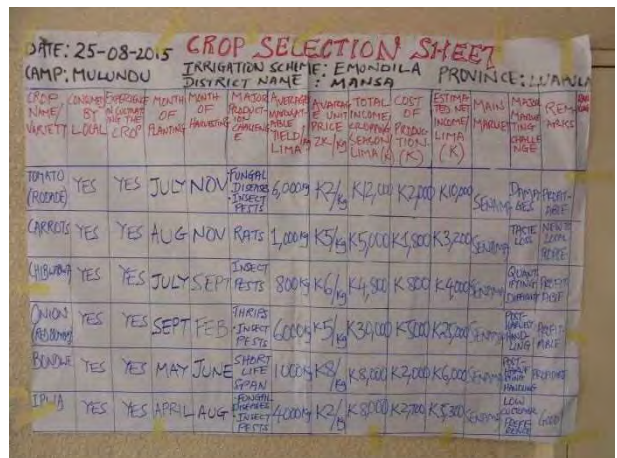 DATE: 25-08-2015 CROP SELECTION SHEET
CAMP: MULUNDU IRRIGATION SCHEME: EMUNDILA PROVINCE: LUAPULA
DISTRICT NAME : MANSA
CROP NAME/ VARIETY CONSUMED BY LOCAL EXPERIENCE IN CULTIVATING THE CROP MONTH OF PLANTING MONTH OF HARVESTING MAJOR PRODUCTION CHALLENGE AVERAGE MARKETABLE YIELD/ LIMA AVARAGE UNIT PRICE ZK/kg TOTAL INCOME/ CROPPING SEASON LIMA (K) COST OF PRODUCTION (K) ESTIMATED NET INCOME/ LIMA (K) MAIN MARKET MAJOR MARKETING CHALLENGE REMARKS
TOMATO (RODADE) YES YES JULY NOV FUNGAL DISEASES INSECT PESTS 6,000kg K2/kg K12,000 K2,000 K10,000 SENAMA DAMAGES PROFITABLE
CARROTS YES YES AUG NOV RATS 1,000kg K5/kg K5,000 K1,800 K3,200 SENAMA TASTE LOSS NEW TO LOCAL
CHIBWABWA YES YES JULY SEPT INSECT PESTS 800kg K6/kg K4,800 K800 K4,000 SENAMA QUANTIFYING DIFFICULT PROFITABLE
ONION YES YES SEPT FEB THRIPS INSECT PESTS 6000kg K5/kg K30,000 K5,000 K25,000 SENAMA POST-HARVEST HANDLING PROFITABLE
BONDWE YES YES MAY JUNE SHORT LIFE SPAN 1000kg K8/kg K8,000 K2,000 K6,000 SENAMA POST-HARVEST HANDLING PROFITABLE
YES YES APRIL AUG FUNGAL DISEASES INSECT PESTS 4000kg K2/kg K8000 K2,700 K5,300 SENAMA LOW CUSTOMER PREFERENCE GOOD